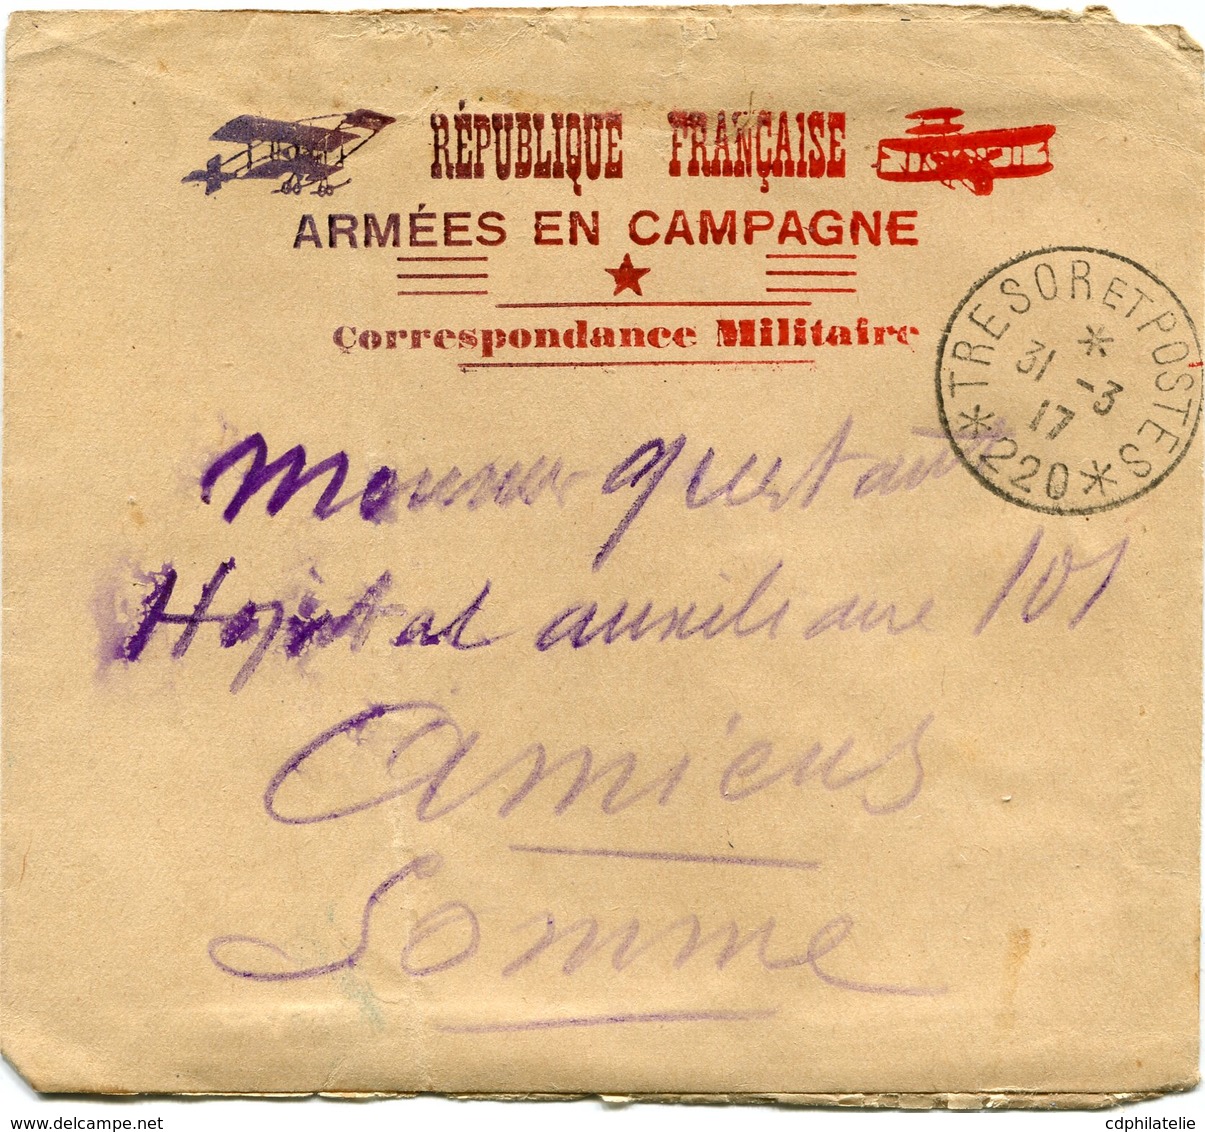 RÉPUBLIQUE FRANÇAISE
ARMÉES EN CAMPAGNE
Correspondance Militaire
*TRESOR ET POSTES*
*
31 -3
17
220
Monsieur
Hopital auxiliaire 101
Amiens
Somme
cdphilatelie